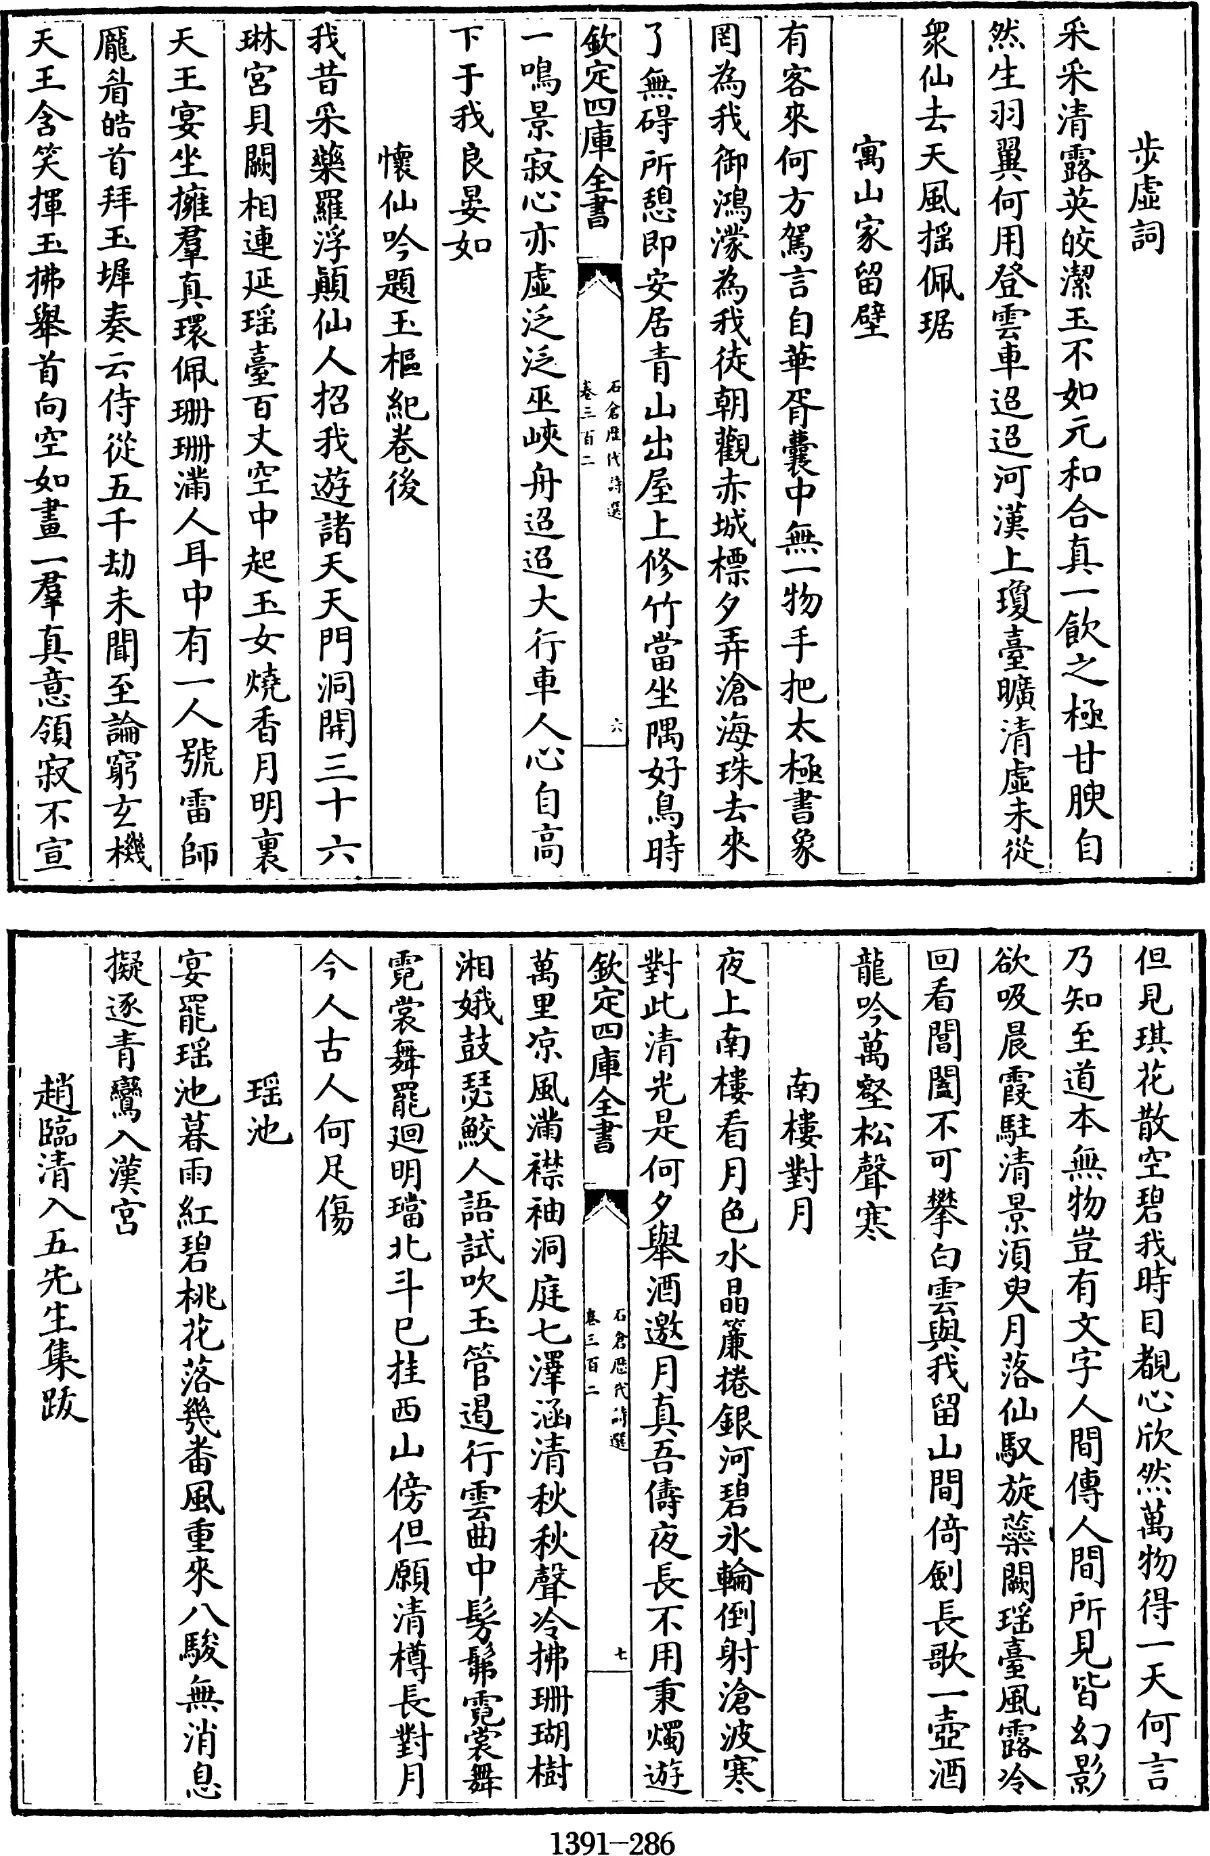 步虛詞
采采清露英皎潔玉不如元和合真一飲之極甘腴自
然生羽翼何用登雲車迢迢河漢上瓊臺曠清虛未從
衆仙去天風揺佩琚
寓山家留壁
有客來何方駕言自華胥囊中無一物手把太極書象
罔為我御鴻濛為我徒朝觀赤城標夕弄滄海珠去來
了無碍所憩即安居青山出屋上修竹當坐隅好鳥時
欽定四庫全書
石倉歴代詩選
卷三百二
六
一鳴景寂心亦虛泛泛巫峽舟迢迢大行車人心自高
下于我良晏如
懷仙吟題玉樞紀卷後
我昔采藥羅浮顛仙人招我遊諸天天門洞開三十六
琳宮貝闕相連延瑶臺百丈空中起玉女燒香月明裏
天王宴坐擁羣真環佩珊珊滿人耳中有一人號雷師
龎眉皓首拜玉墀奏云侍從五千劫未聞至論窮玄機
天王含笑揮玉拂舉首向空如畫一羣真意領寂不宣
但見琪花散空碧我時目覩心欣然萬物得一天何言
乃知至道本無物豈有文字人間傳人間所見皆幻影
欲吸晨霞駐清景湏臾月落仙馭旋蘂闕瑶臺風露冷
回看閶闔不可攀白雲與我留山間倚劍長歌一壺酒
龍吟萬壑松聲寒
南樓對月
夜上南樓看月色水晶簾捲銀河碧氷輪倒射滄波寒
對此清光是何夕舉酒邀月真吾儔夜長不用秉燭遊
欽定四庫全書
石倉歴代詩選
卷三百二
七
萬里凉風滿襟袖洞庭七澤涵清秋秋聲冷拂珊瑚樹
湘娥鼓瑟鮫人語試吹玉管遏行雲曲中髣髴霓裳舞
霓裳舞罷廻明璫北斗已挂西山傍但願清樽長對月
今人古人何足傷
瑶池
宴罷瑶池暮雨紅碧桃花落幾番風重來八駿無消息
擬逐青鸞入漢宮
趙臨清入五先生集跋
1391-286